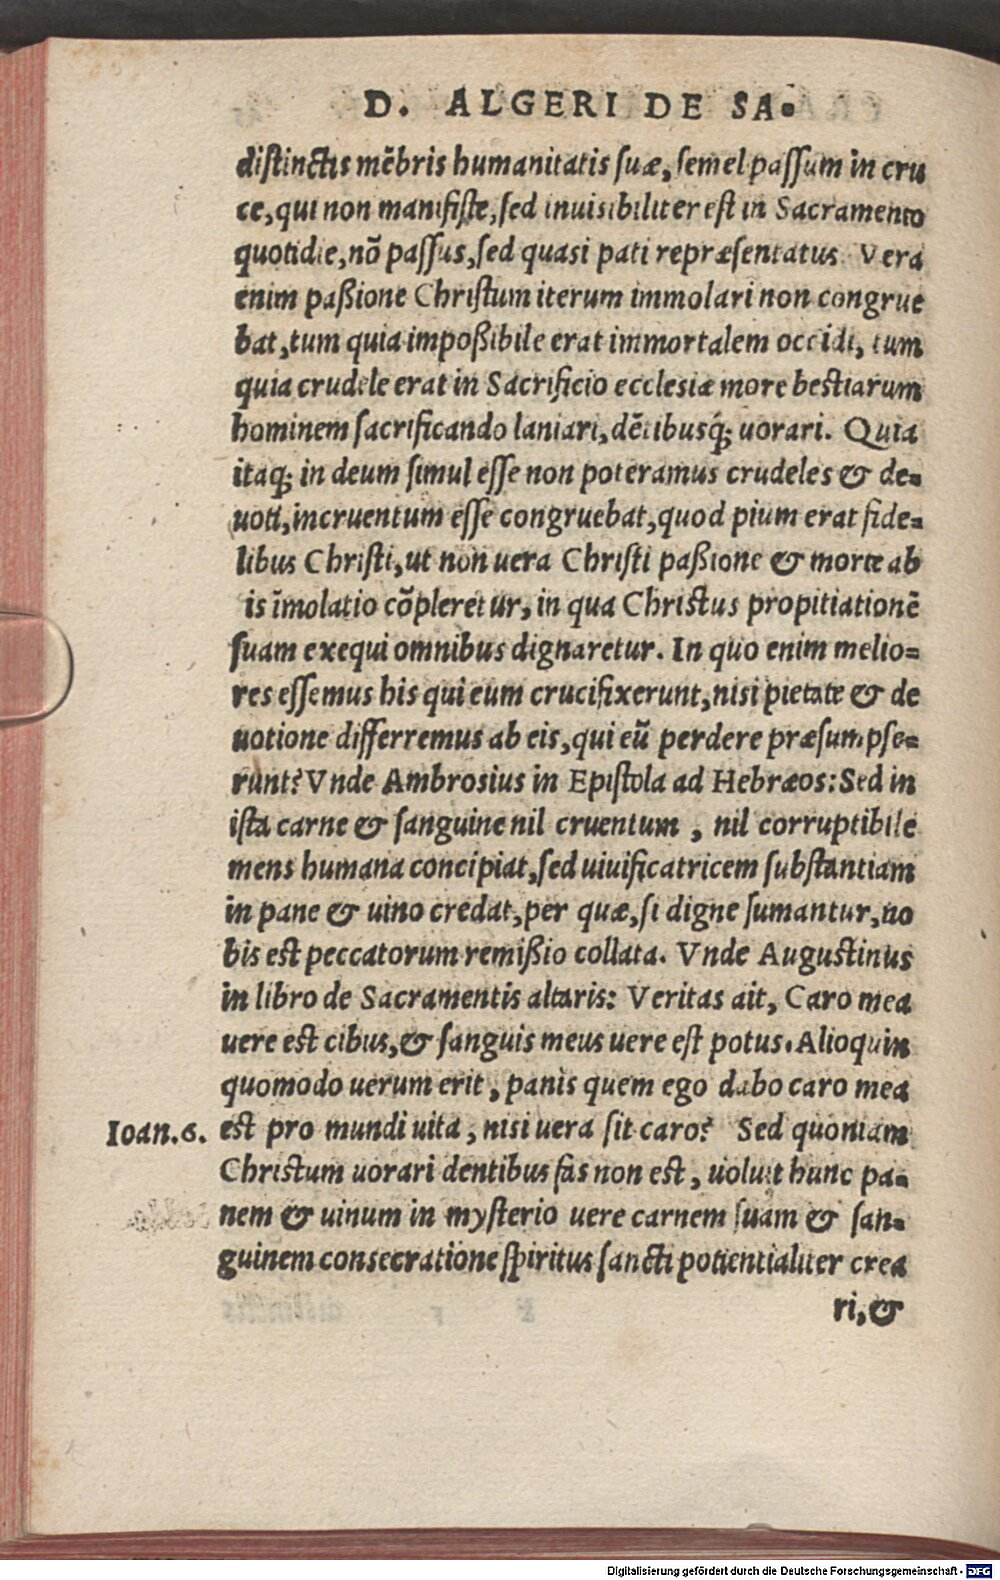 D. ALGERI DE SA.
distinctis mēbris humanitatis suæ, semel passum in cru
ce, qui non manifiste, sed inuisibiliter est in Sacramento
quotidie, nō passus, sed quasi pati repræsentatus. Vera
enim paßione Christum iterum immolari non congrue
bat, tum quia impoßibile erat immortalem occidi, tum
quia crudele erat in Sacrificio ecclesiæ more bestiarum
hominem sacrificando laniari, dētibusq́; uorari. Quia
itaq; in deum simul esse non poteramus crudeles & de-
uoti, incruentum esse congruebat, quod pium erat fide-
libus Christi, ut non uera Christi paßione & morte ab
is īmolatio cōpleretur, in qua Christus propitiationē
suam exequi omnibus dignaretur. In quo enim melio-
res essemus his qui eum crucifixerunt, nisi pietate & de
uotione differremus ab eis, qui eū perdere præsumpse-
runt? Vnde Ambrosius in Epistola ad Hebræos: Sed in
ista carne & sanguine nil cruentum, nil corruptibile
mens humana concipiat, sed uiuificatricem substantiam
in pane & uino credat, per quæ, si digne sumantur, no
bis est peccatorum remißio collata. Vnde Augustinus
in libro de Sacramentis altaris: Veritas ait, Caro mea
uere est cibus, & sanguis meus uere est potus. Alioquin
quomodo uerum erit, panis quem ego dabo caro mea
Ioan.6. est pro mundi uita, nisi uera sit caro? Sed quoniam
Christum uorari dentibus fas non est, uoluit hunc pa-
nem & uinum in mysterio uere carnem suam & san-
guinem consecratione spiritus sancti potientialiter crea
ri, &
Digitalisierung gefördert durch die Deutsche Forschungsgemeinschaft - DFG